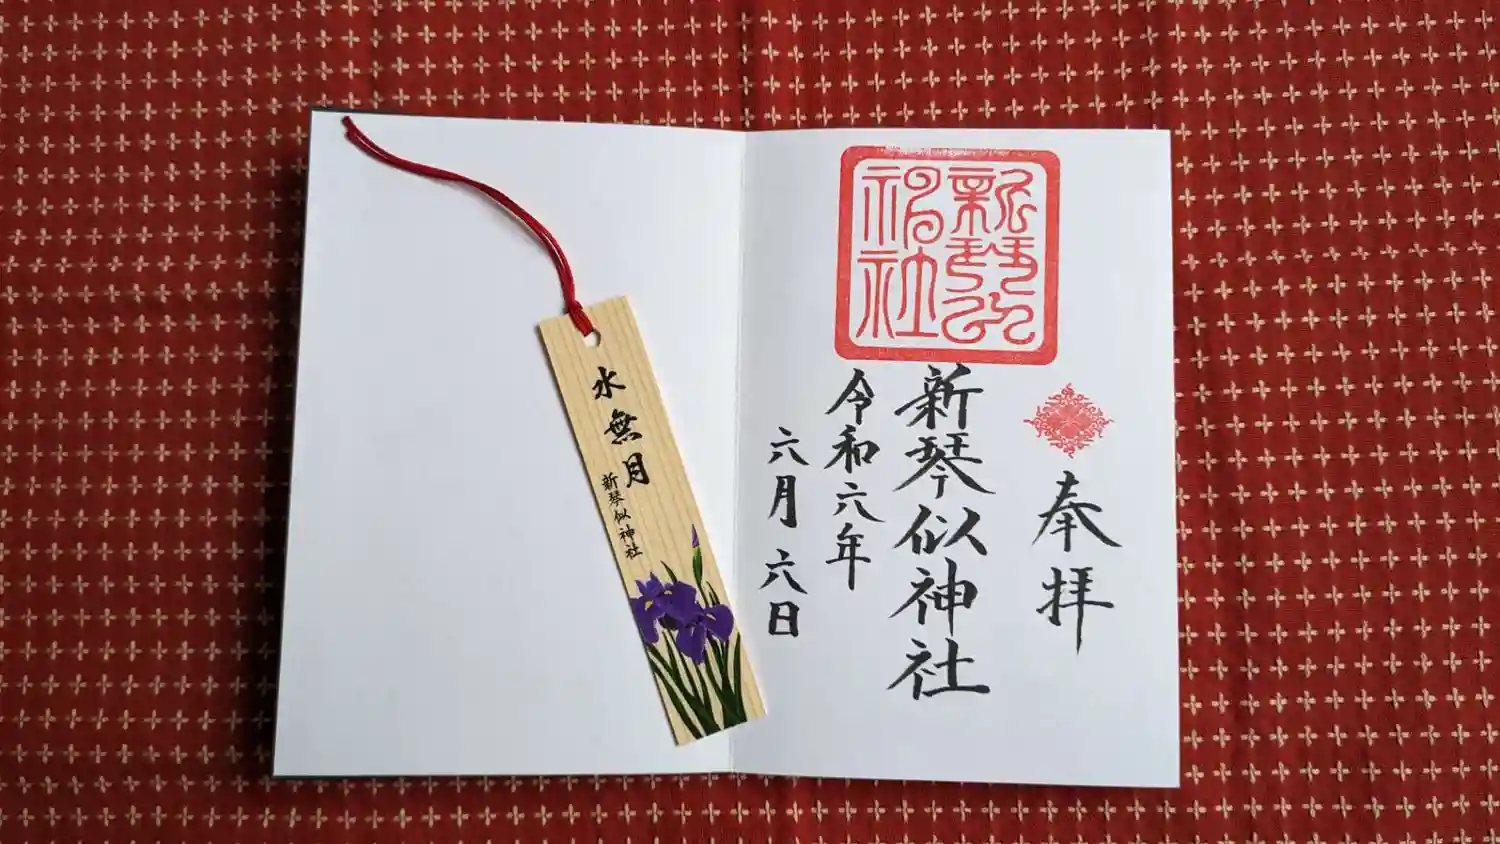 奉拝
新琴似神社
新琴似神社
令和六年
六月六日
水無月
新琴似神社